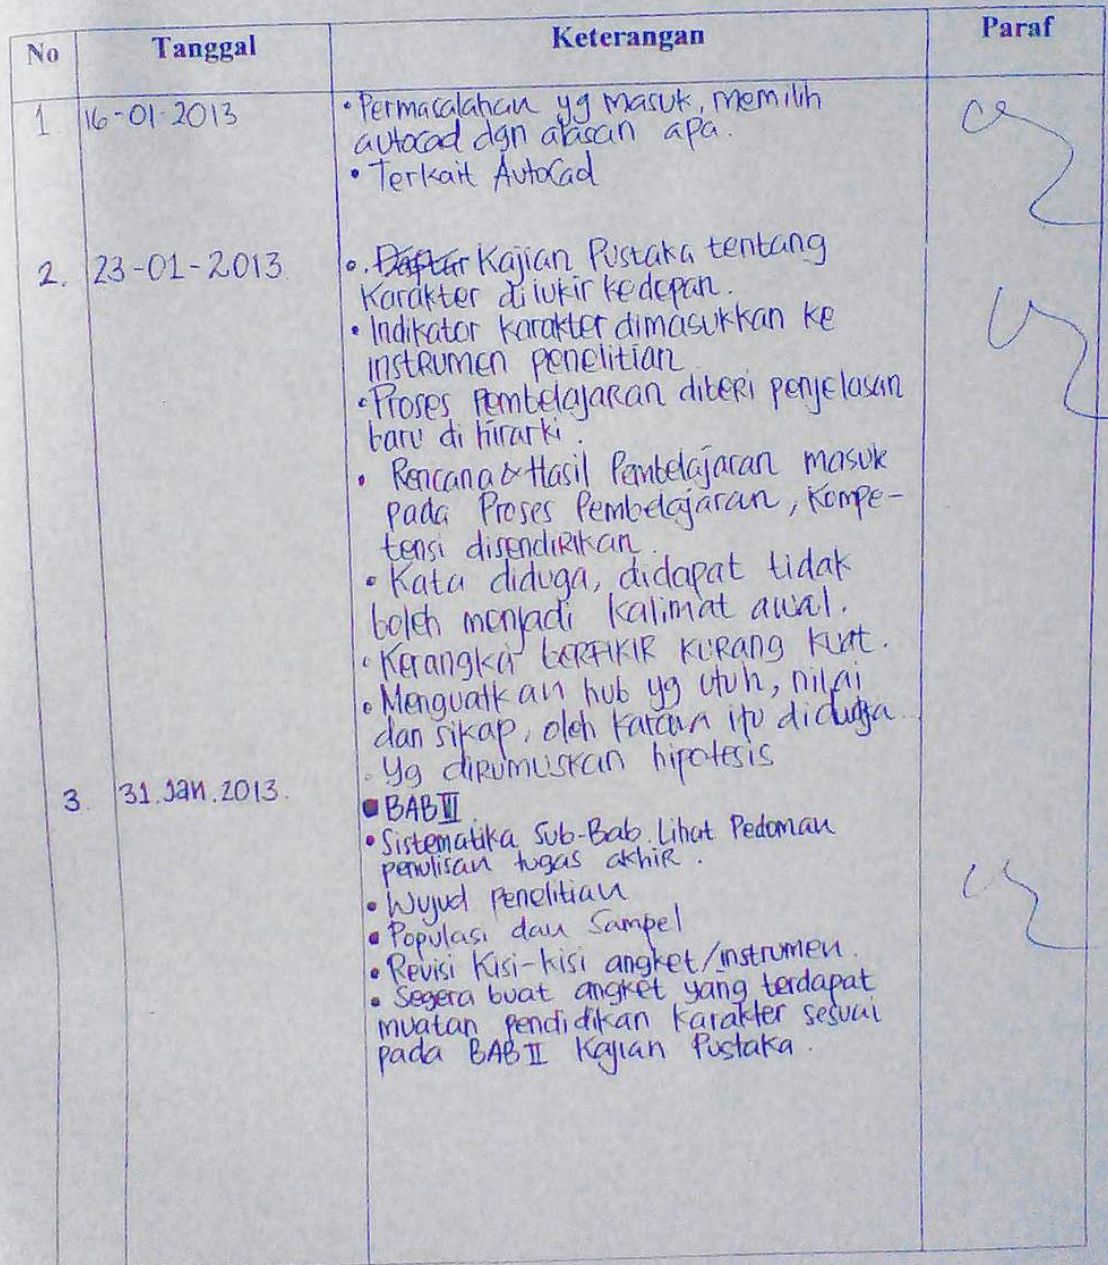 No Tanggal Keterangan Paraf
1. 16-01-2013 • Permasalahan yg masuk, memilih
autocad dgn alasan apa.
• Terkait AutoCad
2. 23-01-2013 • Daftar Kajian Pustaka tentang
Karakter di kedepan.
• Indikator karakter dimasukkan ke
instrumen penelitian
• Proses Pembelajaran diberi penjelasan
baru di hirarki.
• Rencana & Hasil Pembelajaran masuk
pada Proses Pembelajaran, Kompe-
tensi disendirikan.
• Kata diduga, didapat tidak
boleh menjadi kalimat awal.
• Kerangka berfikir kurang kuat.
• Menguatkan hub yg utuh, nilai
dan sikap, oleh karena itu diduga
• Yg dirumuskan hipotesis
3. 31.Jan.2013. • BAB III
• Sistematika Sub-Bab. Lihat Pedoman
penulisan tugas akhir.
• Wujud Penelitian
• Populasi dan Sampel
• Revisi Kisi-kisi angket/instrumen.
• Segera buat angket yang terdapat
muatan pendidikan karakter sesuai
pada BAB II Kajian Pustaka.